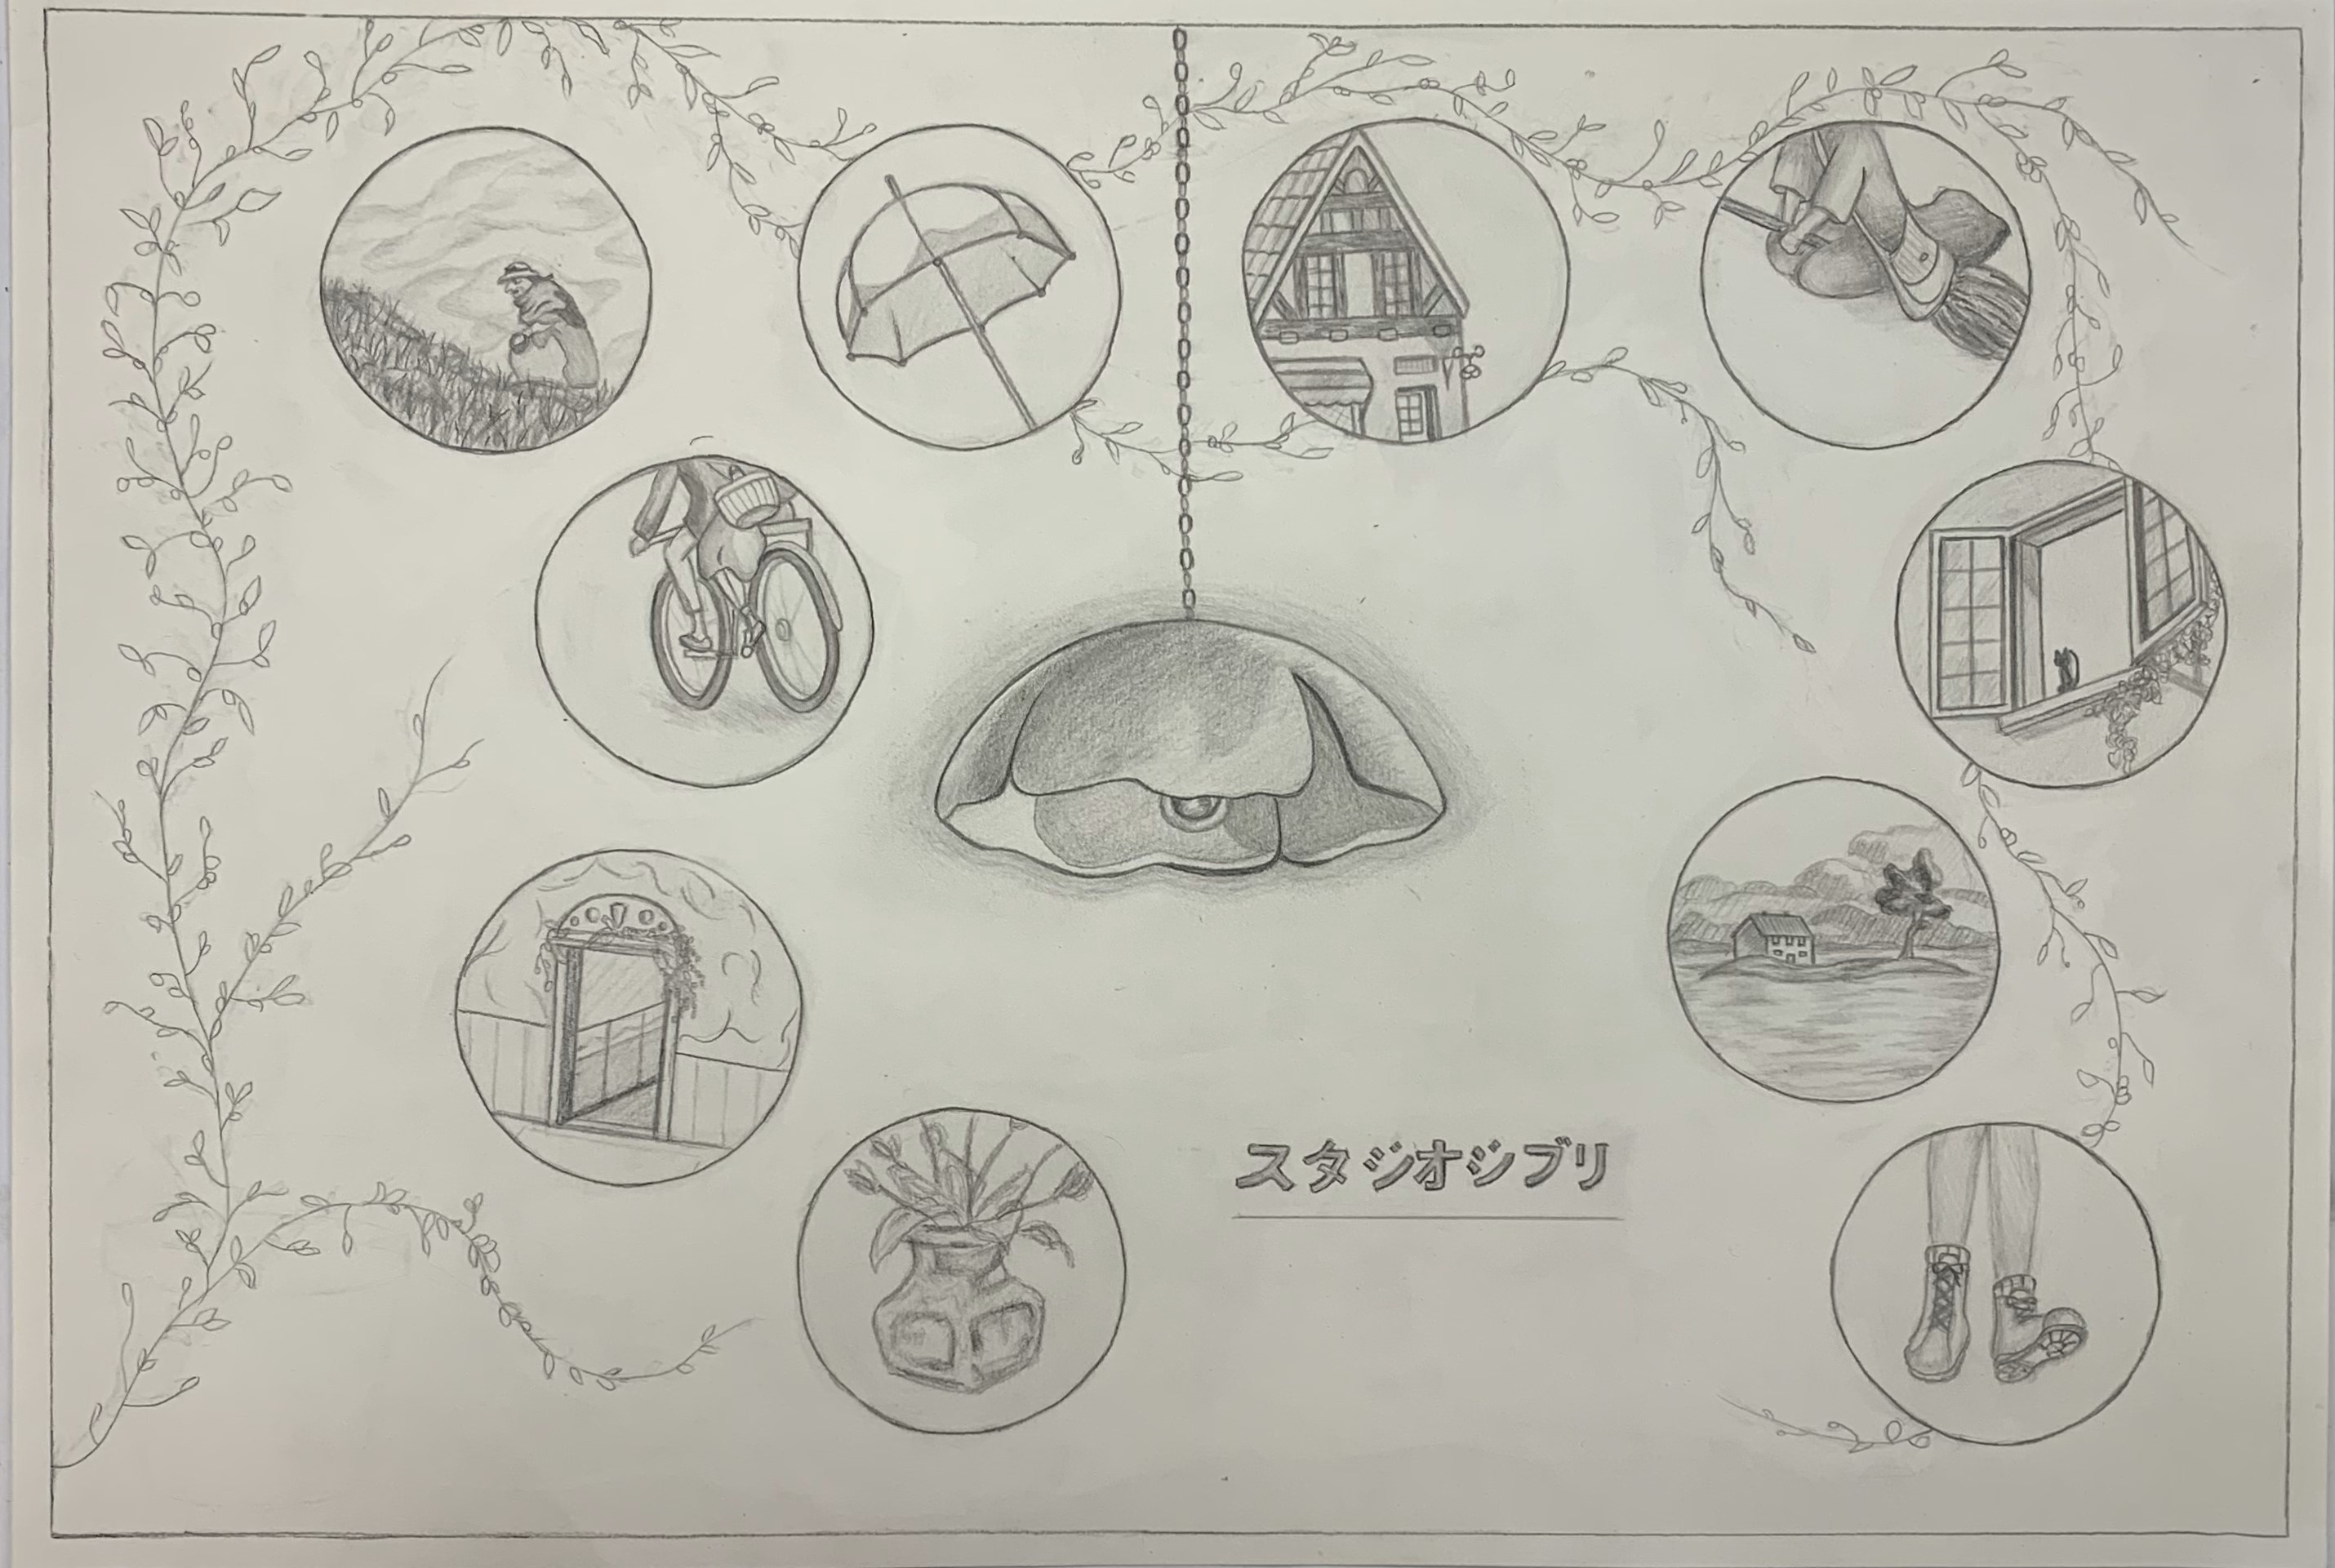 スタジオジブリ